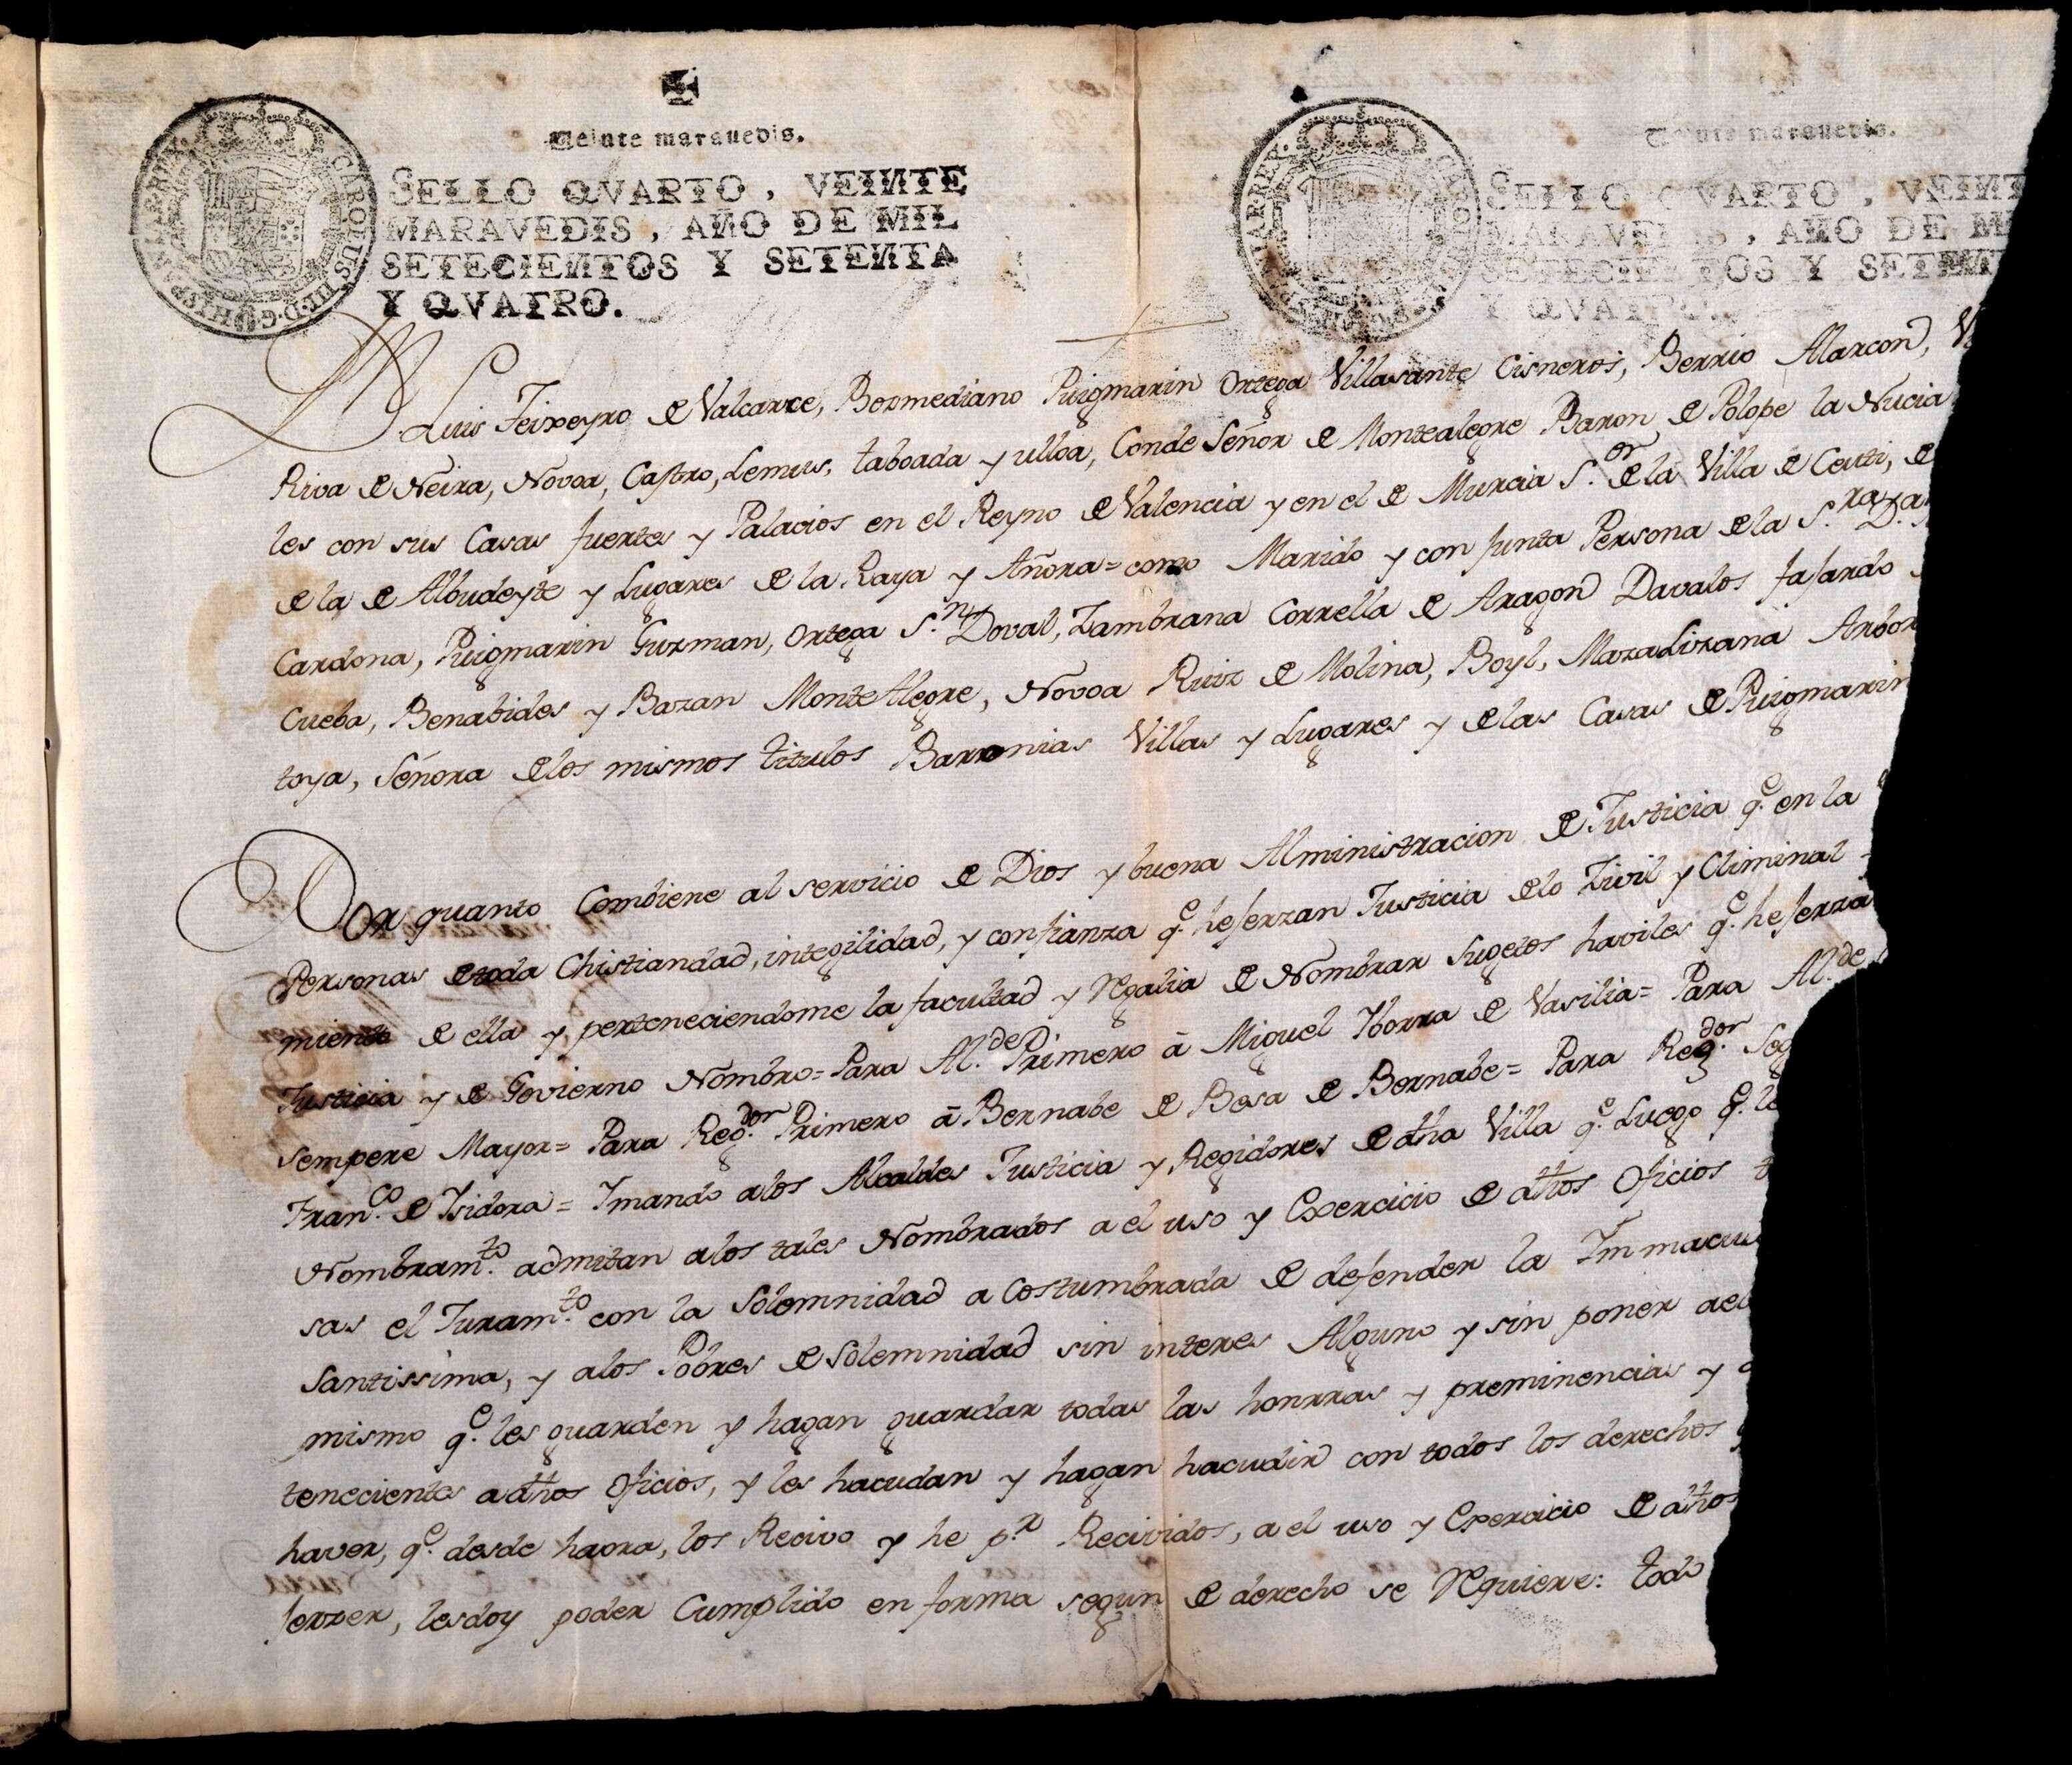 Veinte marauedis.
SELLO QVARTO, VEINTE
MARAVEDIS, AÑO DE MIL
SETECIENTOS Y SETENTA
Y QVATRO.
CAROLUS III D.G. HISPANIAR. REX
Veinte marauedis.
SELLO QVARTO, VEINT
MARAVEDIS, AÑO DE MI
SETECIENTOS Y SETENT
Y QVATRO.
Luis Teixeyro de Valcarce, Bermediano Puigmarin Ortega Villasante Cisneros, Berrio Alarcon,
Riva de Neira, Novoa, Castro, Lemus, taboada y ulloa, Conde Señor de Montealegre Baron de Polope la Nucia
les con sus Casas fuertes y Palacios en el Reyno de Valencia y en el de Murcia S.or de la Villa de Ceuti, de
de la de Albudeyte y Lugares de la Raya y Añora = como Marido y con junta Persona de la S.ra D.a
Cardona, Puigmarin Guzman, Ortega S.n Doval, Zambrana Corrella de Aragon Davalos fajardo
Cueba, Benabides y Bazan Monte Alegre, Novoa Ruiz de Molina, Boyl, Maza Lizana Arbor
toya, Señora de los mismos titulos Barronias Villas y Lugares y de las Casas de Puigmarin
Por quanto Combiene al servicio de Dios y buena Alministracion de Justicia q.e en la
Personas de toda Chistiandad, integilidad, y confianza q.e hejerzan Justicia de lo Zivil y Climinal
miento de ella y, perteneciendome la facultad y Regalia de Nombrar Sugetos haviles q.e hejerza
Justicia y de Govierno Nombro = Para Al.de Primero à Miguel Yborra de Vasilia = Para Al.de
Sempere Mayor = Para Reg.dor Primero à Bernabe de Besa de Bernabe = Para Reg.dor Seg
Fran.co de Isidora = Imando alos Alcaldes Justicia y Regidores de dha Villa q.e Luego q.e le
Nombram.to admitan alos tales Nombrados a el uso y Exercicio de dhos Oficios
sas el Juram.to con la Solemnidad a Costumbrada de defender la Immacu
Santissima, y alos Pobres de Solemnidad sin interes Alguno y sin poner
mismo q.e les guarden y hagan guardar todas las honrras y preminencias y
tenecientes a dhos Oficios, y les hacudan y hagan hacudir con todos los derechos
haver, q.e desde haora, los Recivo y he p.r Recividos, a el uso y Exercicio de dhos
jerzer, lesdoy poder Cumplido en forma segun de derecho se Requiere: todo